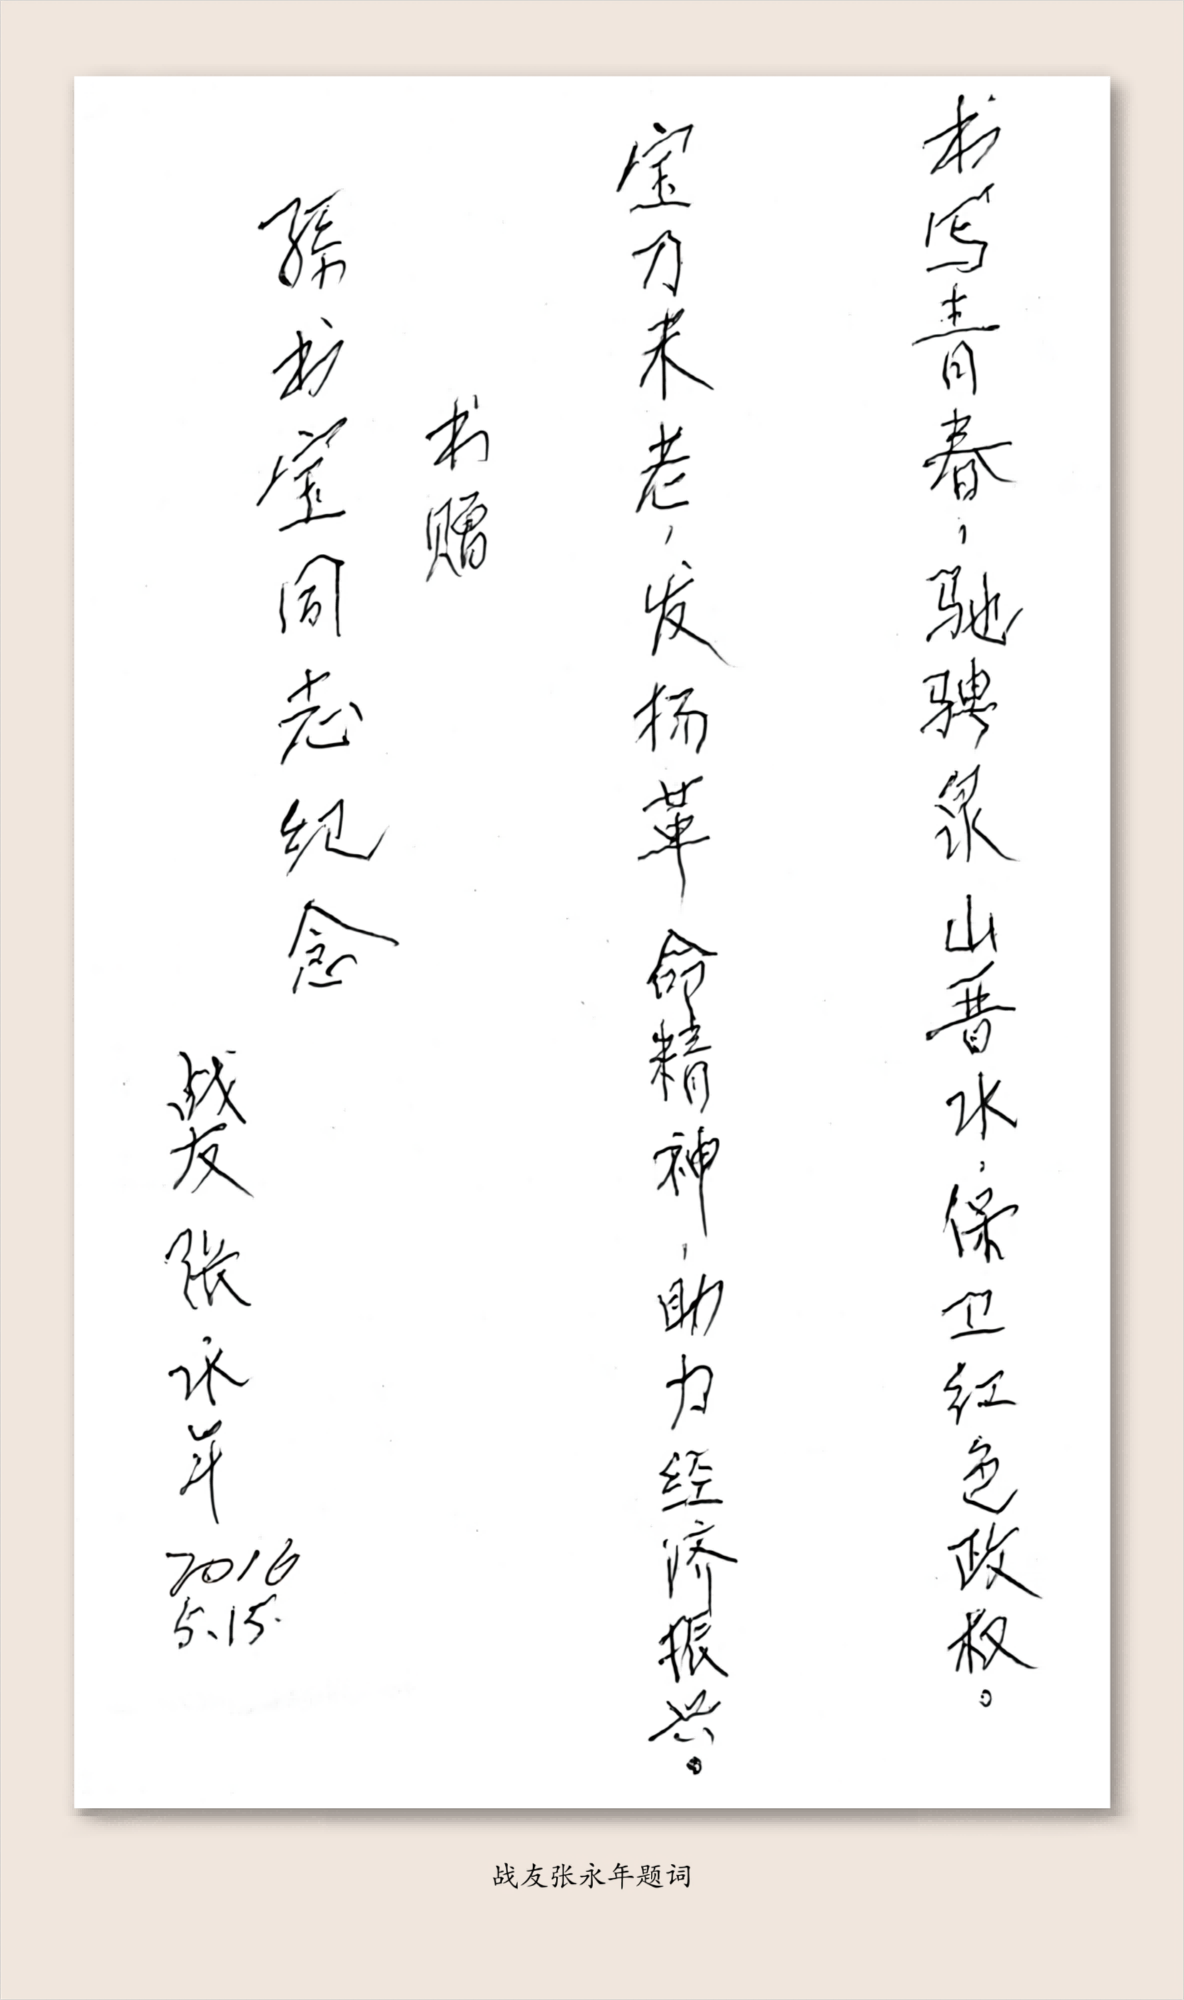 书写青春，驰骋泉山晋水，保卫红色政权。
宝刀未老，发扬革命精神，助力经济振兴。
书赠
孙书宝同志纪念
战友张永年
2016
5.15.
战友张永年题词